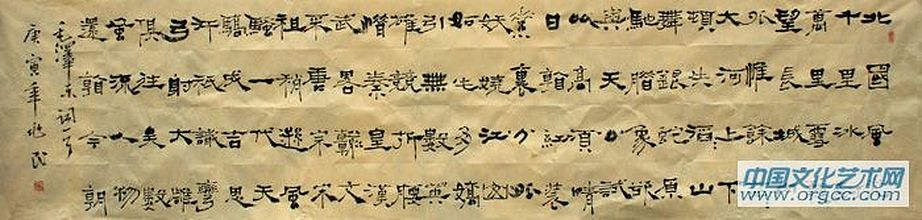 北國風
千里冰
萬里雪
望長城
外惟餘
大河上下
頓失滔山
舞銀蛇原
馳臘象欲
與天公試
比高須晴
日看紅裝
素裹分外
妖嬈江山
如此多嬌
引無數英
雄競折腰
惜秦皇漢
武略輸文
采唐宗宋
祖稍遜風
騷一代天
驕成吉思
汗祇識彎
弓射大雕
俱往矣數
風流人物
還看今朝
毛澤東詞一首
庚寅年
中国文化艺术网
www.orgcc.com